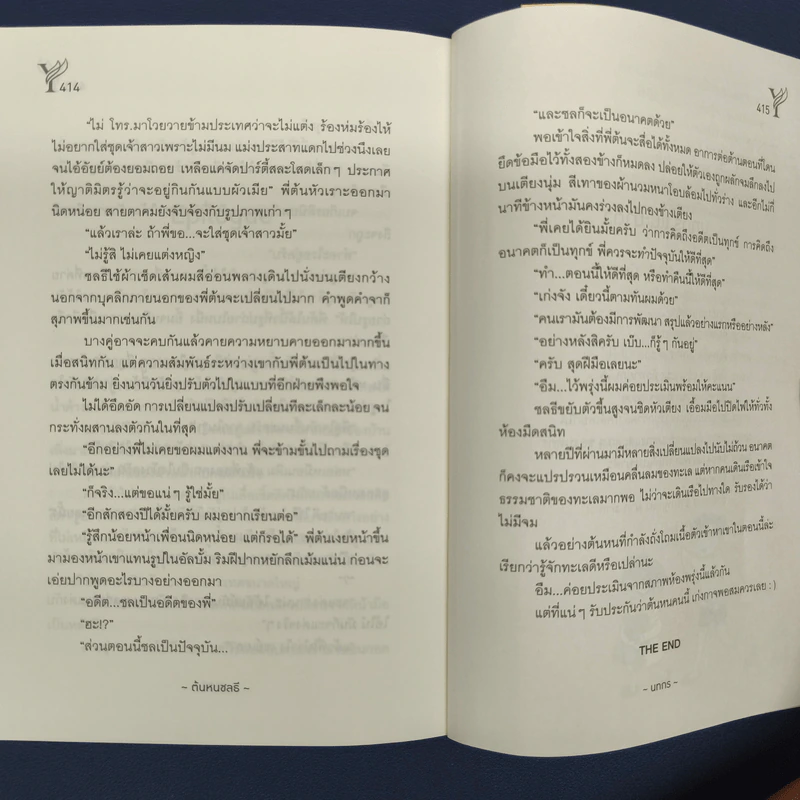 414
"ไม่ โทร.มาโวยวายข้ามประเทศว่าจะไม่แต่ง ร้องห่มร้องไห้
ไม่อยากใส่ชุดเจ้าสาวเพราะไม่มีนม แม่งประสาทแดกไปช่วงนึงเลย
จนไอ้อัยย์ต้องยอมถอย เหลือแค่จัดปาร์ตี้สละโสดเล็กๆ ประกาศ
ให้ญาติมิตรรู้ว่าจะอยู่กินกันแบบผัวเมีย" พี่ต้นหัวเราะออกมา
นิดหน่อย สายตาคมยังจับจ้องกับรูปภาพเก่าๆ
"แล้วเราล่ะ ถ้าพี่ขอ...จะใส่ชุดเจ้าสาวมั้ย"
"ไม่รู้สิ ไม่เคยแต่งหญิง"
ชลธีใช้ผ้าเช็ดเส้นผมสีอ่อนพลางเดินไปนั่งบนเตียงกว้าง
นอกจากบุคลิกภายนอกของพี่ต้นจะเปลี่ยนไปมาก คำพูดคำจาก็
สุภาพขึ้นมากเช่นกัน
บางคู่อาจจะคบกันแล้วคายความหยาบคายออกมามากขึ้น
เมื่อสนิทกัน แต่ความสัมพันธ์ระหว่างเขากับพี่ต้นเป็นไปในทาง
ตรงกันข้าม ยิ่งนานวันยิ่งปรับตัวไปในแบบที่อีกฝ่ายพึงพอใจ
ไม่ได้อึดอัด การเปลี่ยนแปลงปรับเปลี่ยนทีละเล็กละน้อย จน
กระทั่งผสานลงตัวกันในที่สุด
"อีกอย่างพี่ไม่เคยขอผมแต่งงาน พี่จะข้ามขั้นไปถามเรื่องชุด
เลยไม่ได้นะ"
"ก็จริง...แต่ขอแน่ๆ รู้ใช่มั้ย"
"อีกสักสองปีได้มั้ยครับ ผมอยากเรียนต่อ"
"รู้สึกน้อยหน้าเพื่อนนิดหน่อย แต่ก็รอได้" พี่ต้นเงยหน้าขึ้น
มามองหน้าเขาแทนรูปในอัลบั้ม ริมฝีปากหยักลึกเม้มแน่น ก่อนจะ
เอ่ยปากพูดอะไรบางอย่างออกมา
"อดีต...ชลเป็นอดีตของพี่"
"ฮะ!?"
"ส่วนตอนนี้ชลเป็นปัจจุบัน...
~ ต้นหนชลธี ~
415
"และชลก็จะเป็นอนาคตด้วย"
พอเข้าใจสิ่งที่พี่ต้นจะสื่อได้ทั้งหมด อาการต่อต้านตอนที่โดน
ยึดข้อมือไว้ทั้งสองข้างก็หมดลง ปล่อยให้ตัวเองถูกผลักจมลึกลงไป
บนเตียงนุ่ม สีเทาของผ้านวมหนาโอบล้อมไปทั่วร่าง และอีกไม่กี่
นาทีข้างหน้ามันคงร่วงลงไปกองข้างเตียง
"พี่เคยได้ยินมั้ยครับ ว่าการคิดถึงอดีตเป็นทุกข์ การคิดถึง
อนาคตก็เป็นทุกข์ พี่ควรจะทำปัจจุบันให้ดีที่สุด"
"ทำ...ตอนนี้ให้ดีที่สุด หรือทำคืนนี้ให้ดีที่สุด"
"เก่งจัง เดี๋ยวนี้ตามทันผมด้วย"
"คนเรามันต้องมีการพัฒนา สรุปแล้วอย่างแรกหรืออย่างหลัง"
"อย่างหลังสิครับ เบ๊บ...ก็รู้ๆ กันอยู่"
"ครับ สุดฝีมือเลยนะ"
"อืม...ไว้พรุ่งนี้ผมค่อยประเมินพร้อมให้คะแนน"
ชลธีขยับตัวขึ้นสูงจนชิดหัวเตียง เอื้อมมือไปปิดไฟให้ทั่วทั้ง
ห้องมืดสนิท
หลายปีที่ผ่านมามีหลายสิ่งเปลี่ยนแปลงไปนับไม่ถ้วน อนาคต
ก็คงจะแปรปรวนเหมือนคลื่นลมของทะเล แต่หากคนเดินเรือเข้าใจ
ธรรมชาติของทะเลมากพอ ไม่ว่าจะเดินเรือไปทางใด รับรองได้ว่า
ไม่มีจม
แล้วอย่างต้นหนที่กำลังถั่งโถมเนื้อตัวเข้าหาเขาในตอนนี้ล่ะ
เรียกว่ารู้จักทะเลดีหรือเปล่านะ
อืม...ค่อยประเมินจากสภาพห้องพรุ่งนี้แล้วกัน
แต่ที่แน่ๆ รับประกันว่าต้นหนคนนี้ เก่งกาจพอสมควรเลย :)
THE END
~ นทกร ~